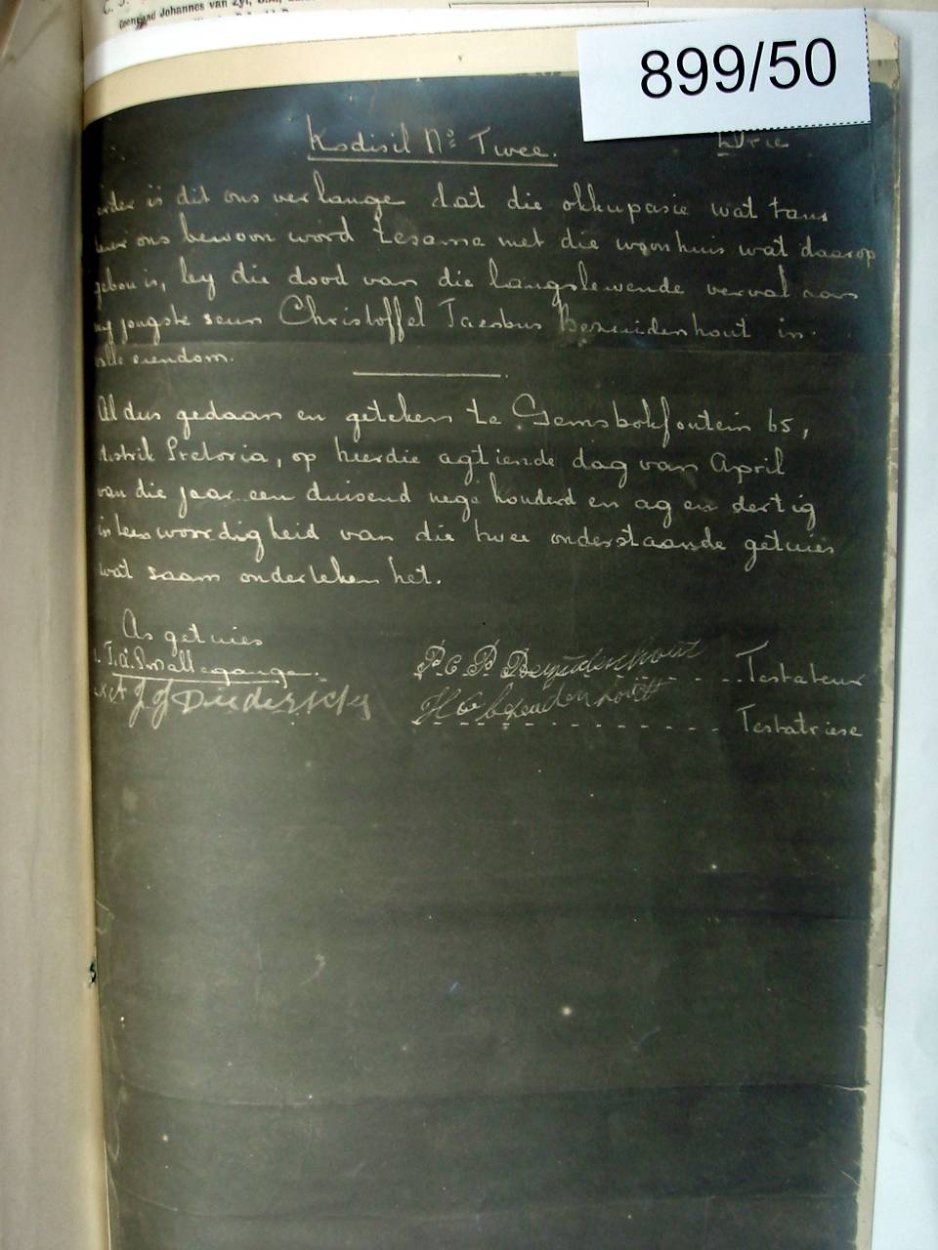 Johannes van Zyl,
899/50
Kodisil No Twee.
Drie
is dit ons verlange dat die okkupasie wat tans
ons bewoon word tesame met die woonhuis wat daarop
gebou is, by die dood van die langslewende verval aan
my jongste seun Christoffel Jacobus Bezuidenhout in
volle eiendom.
Aldus gedaan en geteken te Gemsbokfontein 65,
distrik Pretoria, op hierdie agtiende dag van April
van die jaar een duisend nege honderd en ag en dertig
in teenwoordigheid van die twee onderstaande getuies
wat saam onderteken het.
As getuies
J. A. Smallegange. P C P Bezuidenhout Testateur
J J Diedericks H C bezuidenhout Testatriese